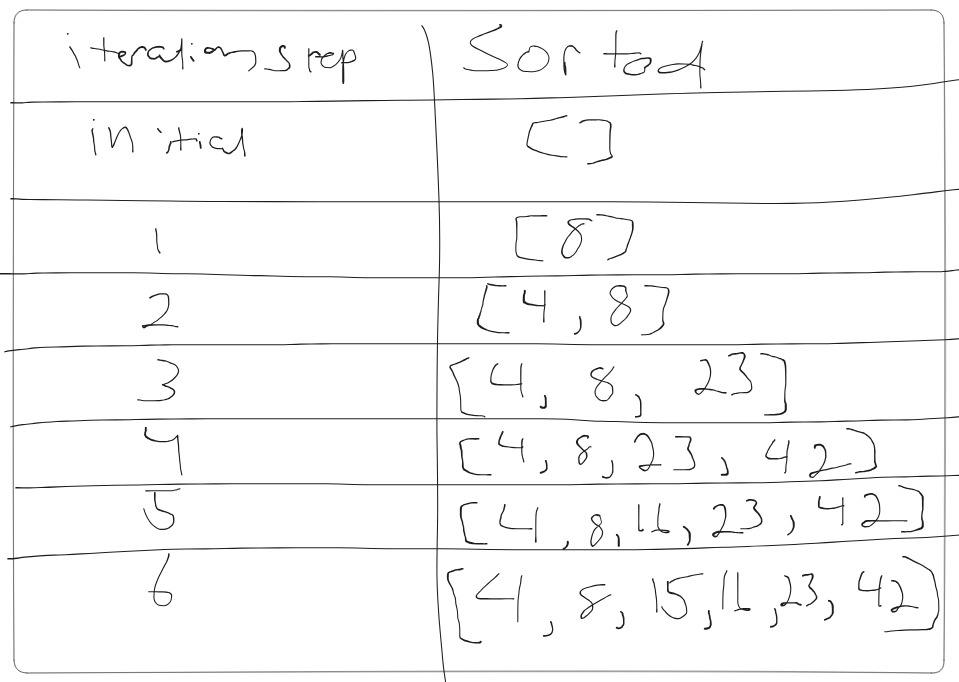 iteration step Sorted
initial []
1 [8]
2 [4, 8]
3 [4, 8, 23]
4 [4, 8, 23, 42]
5 [4, 8, 16, 23, 42]
6 [4, 8, 15, 16, 23, 42]